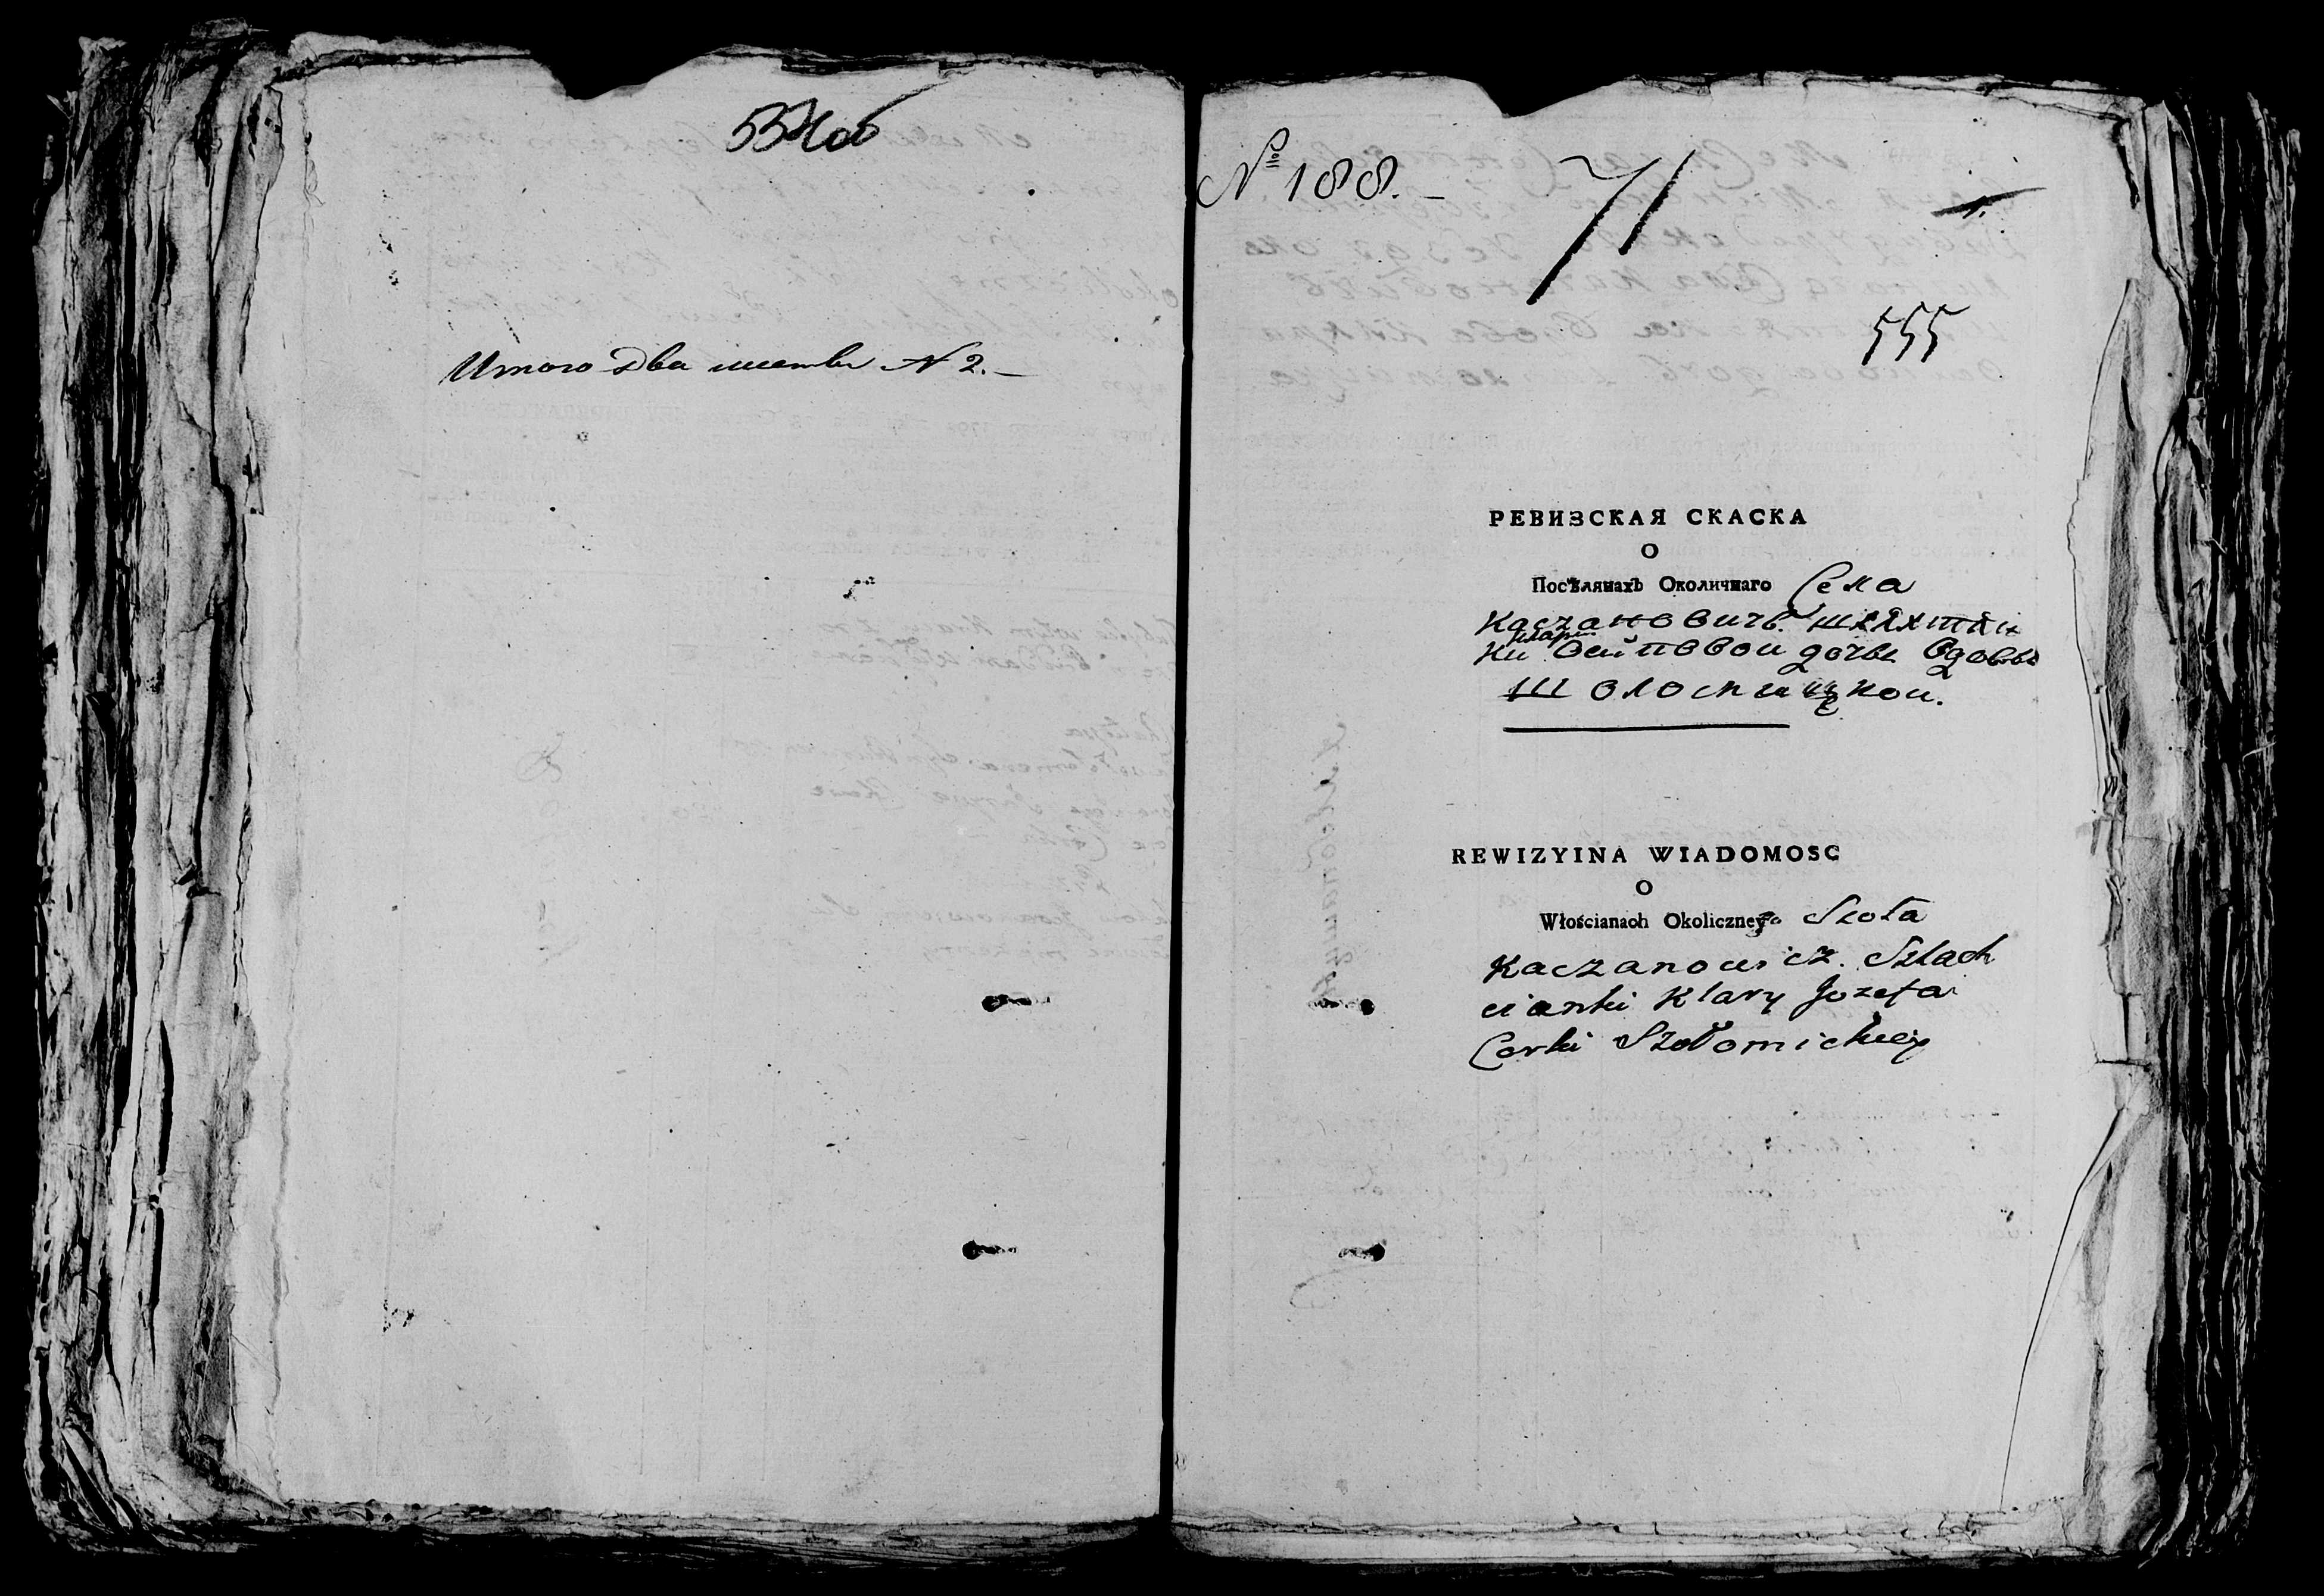 554об
Итого два листа N 2. —
№ 188. —
71
1.
555
РЕВИЗСКАЯ СКАСКА
О
Посѣлянахъ Околичнаго Села
Качановичъ. шляхтян
клары
ки Осиповои дочъ вдовы
REWIZYINA WIADOMOSC
O
Włościanach Okolicznego Sioła
Kaczanowicz. Szlach
cianki Klary Jozefa
Corki Szołomickiey